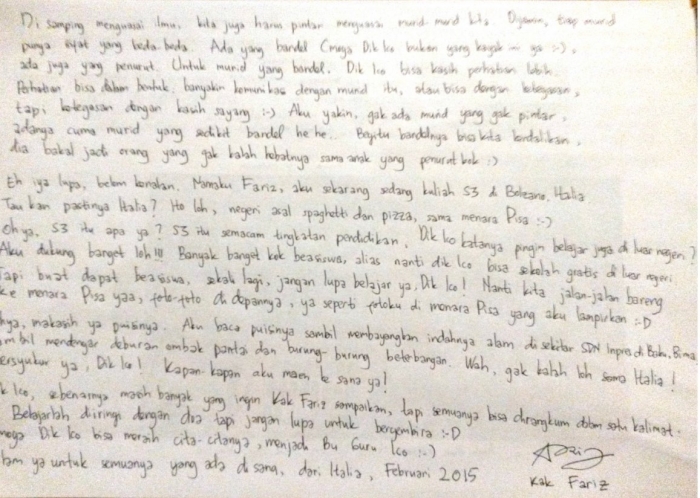 Di samping menguasai ilmu, kita juga harus pintar menguasai murid-murid kita. Dijamin, tiap murid
punya sifat yang beda-beda. Ada yang bandel (moga Dik Ico bukan yang kayak ini ya :-) ,
ada juga yang penurut. Untuk murid yang bandel, Dik Ico bisa kasih perhatian lebih.
Perhatian bisa dalam bentuk, banyakin komunikasi dengan murid itu, atau bisa dengan ketegasan,
tapi ketegasan dengan kasih sayang :-) Aku yakin, gak ada murid yang gak pintar,
adanya cuma murid yang sedikit bandel he he.. Begitu bandelnya bisa kita kendalikan,
dia bakal jadi orang yang gak kalah hebatnya sama anak yang penurut kok :)
Eh iya lupa, belom kenalan. Namaku Fariz, aku sekarang sedang kuliah S3 di Bolzano, Italia
Tau kan pastinya Italia? Ito loh, negeri asal spaghetti dan pizza, sama menara Pisa :-)
Oh ya, S3 itu apa ya? S3 itu semacam tingkatan pendidikan. Dik Ico katanya pingin belajar juga di luar negeri?
Aku dukung banget loh!!! Banyak banget kok beasiswa, alias nanti dik Ico bisa sekolah gratis di luar negeri
Tapi buat dapat beasiswa, sekali lagi, jangan lupa belajar ya, Dik Ico! Nanti kita jalan-jalan bareng
ke menara Pisa yaa, foto-foto di depannya, ya seperti fotoku di menara Pisa yang aku lampirkan :D
hya, makasih ya puisinya. Aku baca puisinya sambil membayangkan indahnya alam di sekitar SDN Inpres di Baku, Bima
mbil mendengar deburan ombak pantai dan burung-burung beterbangan. Wah, gak kalah loh sama Italia!
ersyukur ya, Dik Ico! Kapan-kapan aku maen ke sana ya!
k Ico, sebenarnya masih banyak yang ingin Kak Fariz sampaikan, tapi semuanya bisa dirangkum dalam satu kalimat.
Belajarlah diiringi dengan doa tapi jangan lupa untuk bergembira :-D
moga Dik Ico bisa meraih cita-citanya, menjadi Bu Guru Ico :-)
lam ya untuk semuanya yang ada di sana, dari Italia, Februari 2015
Kak Fariz